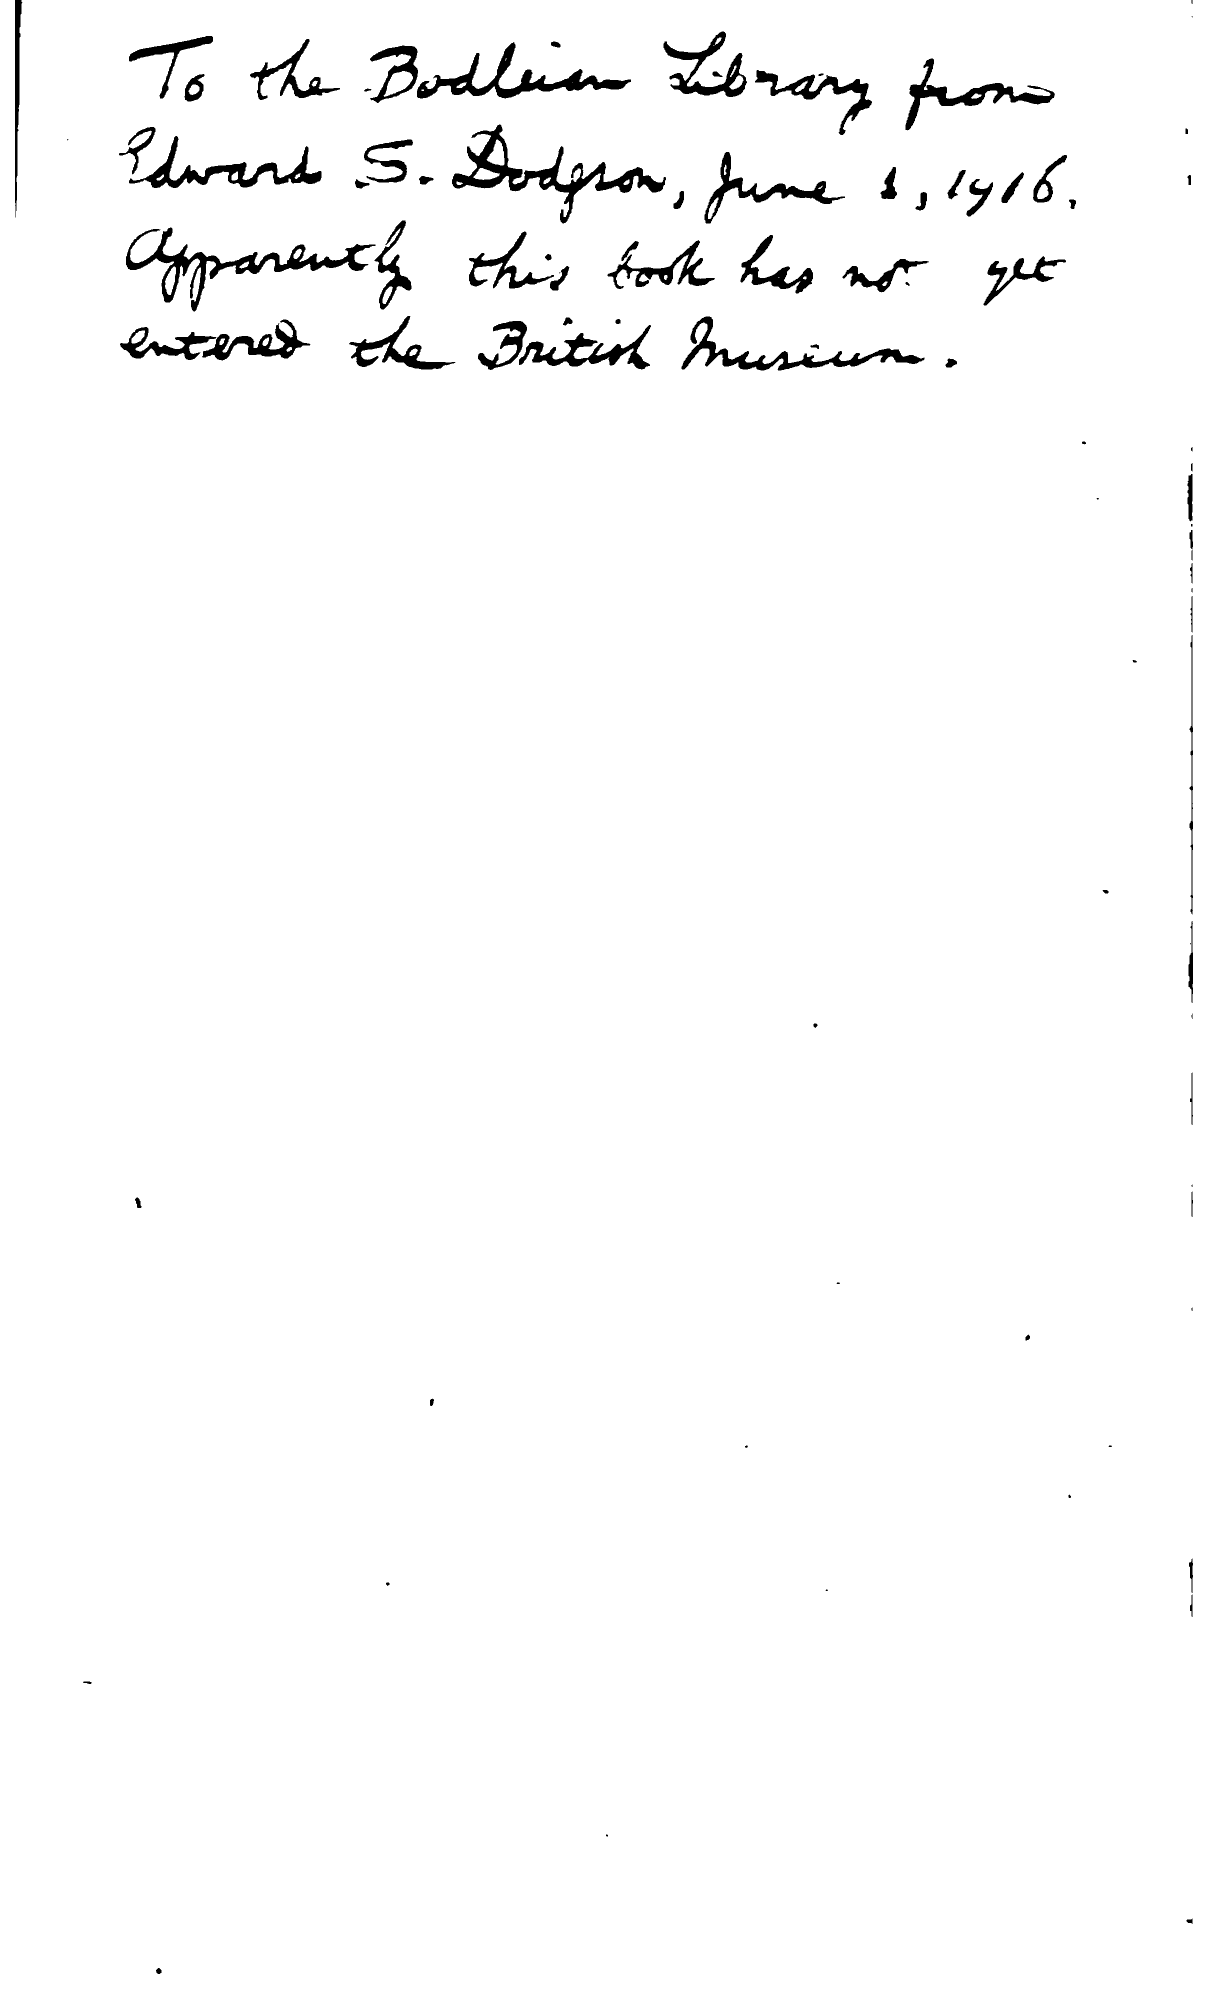 To the Bodleian Library from
Edward S. Dodgson, June 1, 1916.
Apparently this book has not yet
entered the British Museum.